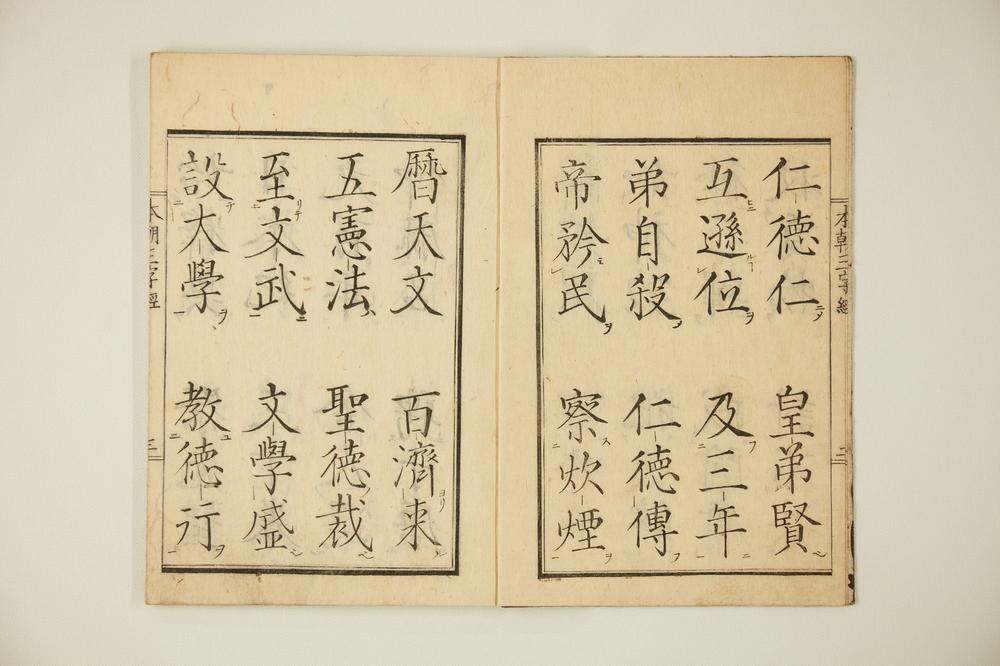 仁德仁 皇弟賢
互遜位 及三年
弟自殺 仁德傳
帝矜民 察炊煙
曆天文 百濟来
五憲法 聖德裁
至文武 文學盛
設大學 教德行
本朝三字經
本朝三字經 三